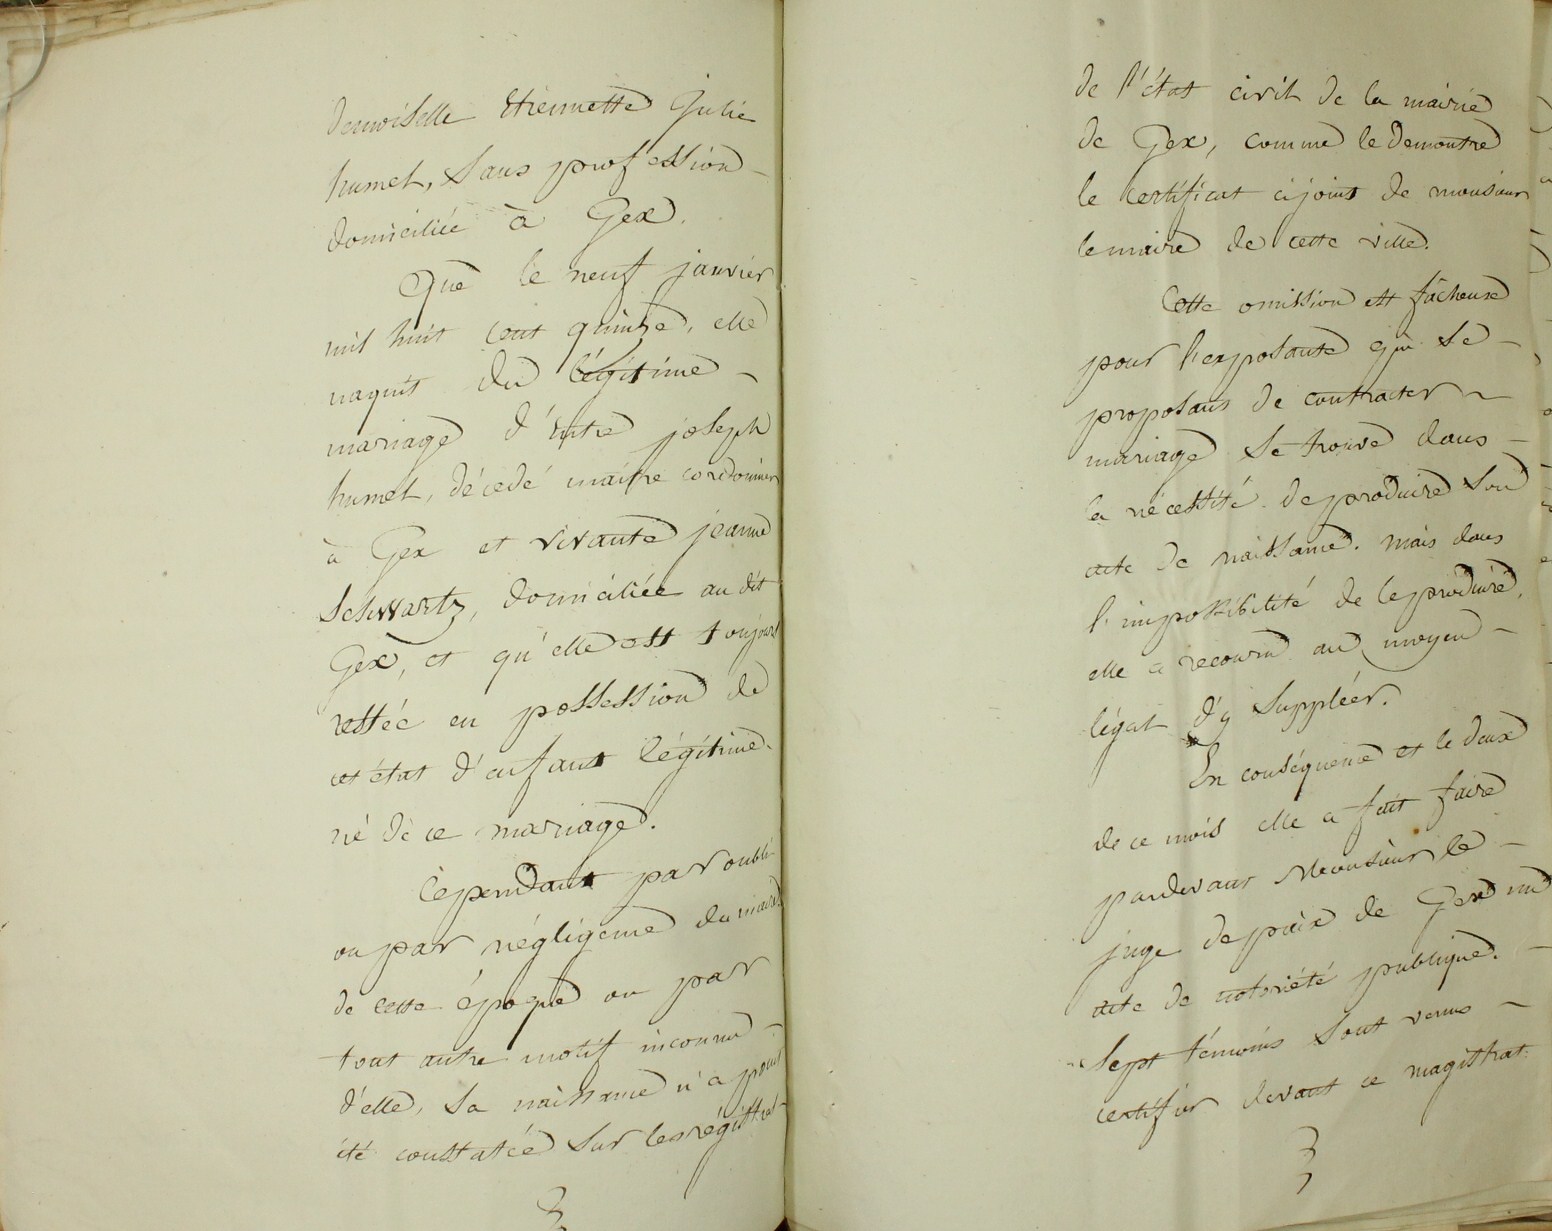 demoiselle Etiennette Julie
humet, sans profession -
domiciliée à Gex.
Que le neuf janvier
mil huit cent quinze, elle
naquit du légitime -
mariage d'entre joseph
humet, décedé maitre cordonnier
à Gex et vivante jeanne
Schwartz, domiciliée au dit
Gex, et qu'elle est toujours
restée en possession de
cet état d'enfant légitime
né de ce mariage.
Cependant par oubli
ou par négligence du maire
de cette époque ou par
tout autre motif inconnu -
d'elle, sa naissance n'a point
été constatée sur les régistres -
de l'état civil de la mairie
de Gex, comme le demontre
le certificat cijoint de monsieur
le maire de cette ville.
Cette omission est fâcheuse
pour l'exposante qui se -
proposant de contracter -
mariage se trouve dans -
la nécessité de produire son
acte de naissance. mais dans
l'impossibilité de le produire,
elle a recours au moyen -
légal d'y suppléer.
En conséquence et le deux
de ce mois elle a fait faire
pardevant Monsieur le -
juge de paix de Gex un
acte de notoriété publique. -
Sept témoins sont venus -
certifier devant ce magistrat